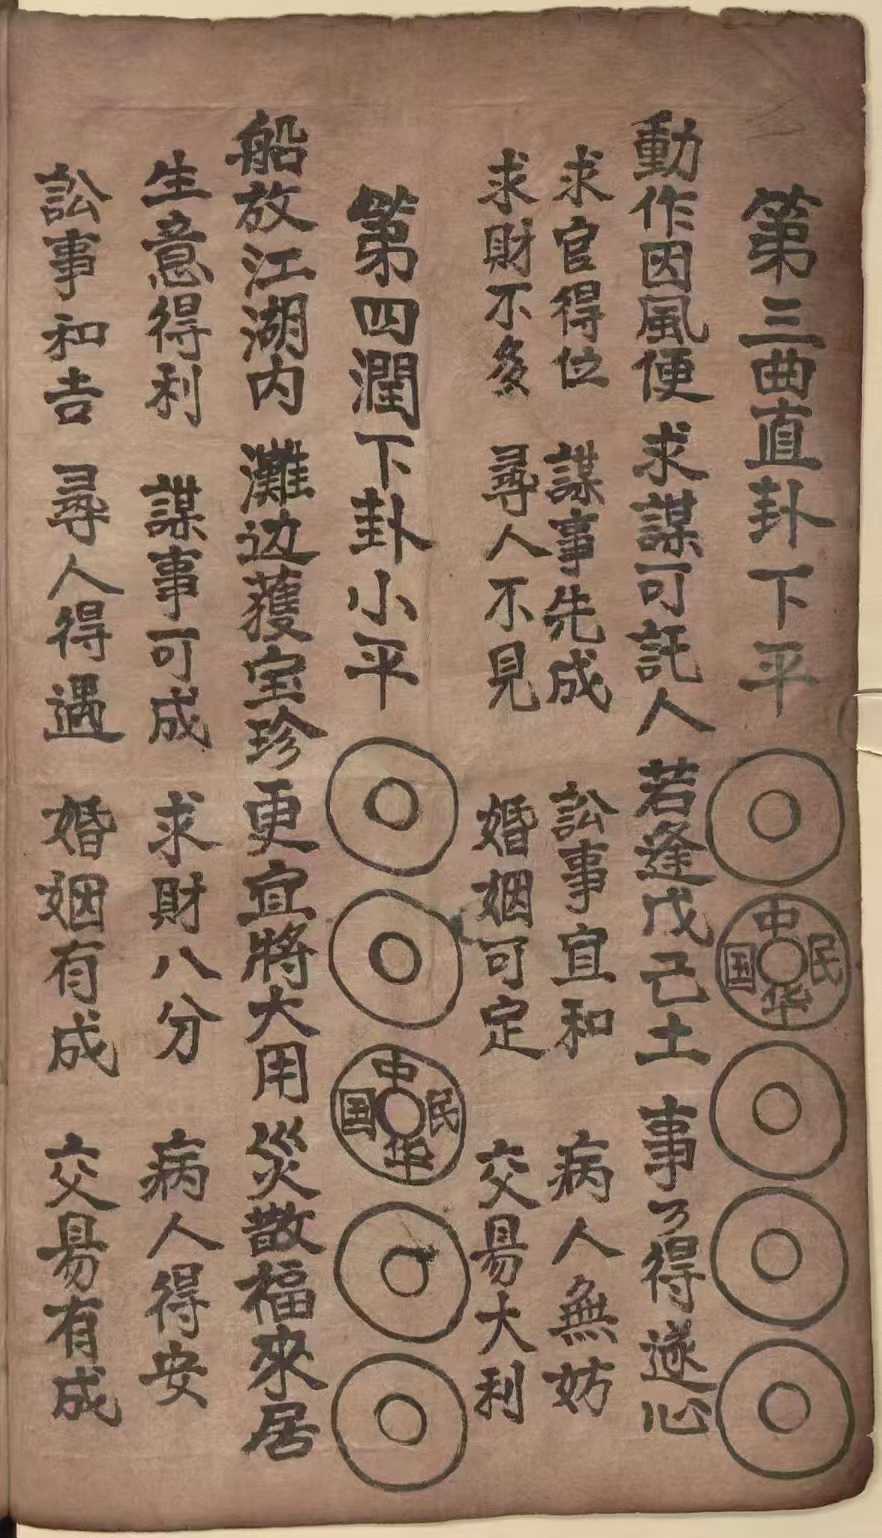 第三曲直卦下平
中华民国
動作因風便 求謀可託人 若逢戊己土 事乃得遂心
求官得位 謀事先成 訟事宜和 病人無妨
求財不多 尋人不見 婚姻可定 交易大利
第四潤下卦小平
中华民国
船放江湖内 灘边獲宝珍 更宜將大用 災散福來居
生意得利 謀事可成 求財八分 病人得安
訟事和吉 尋人得遇 婚姻有成 交易有成